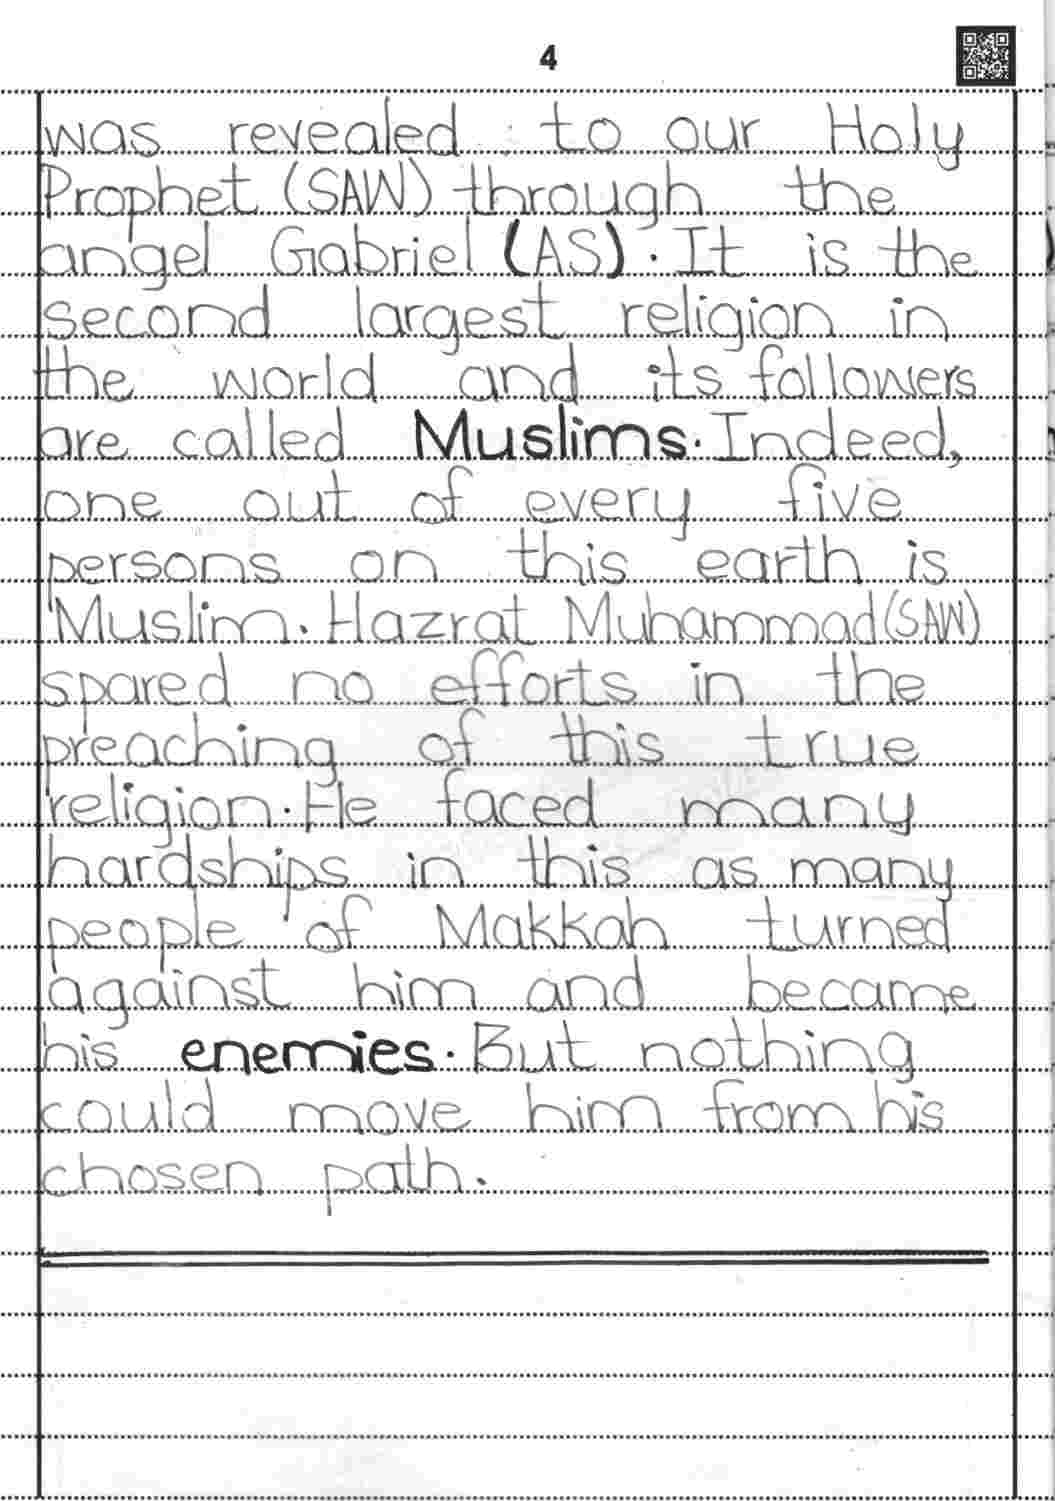 4
was revealed to our Holy
Prophet (SAW) through the
angel Gabriel (AS). It is the
second largest religion in
the world and its followers
are called Muslims. Indeed,
one out of every five
persons on this earth is
Muslim. Hazrat Muhammad (SAW)
spared no efforts in the
preaching of this true
religion. He faced many
hardships in this as many
people of Makkah turned
against him and became
his enemies. But nothing
could move him from his
chosen path.